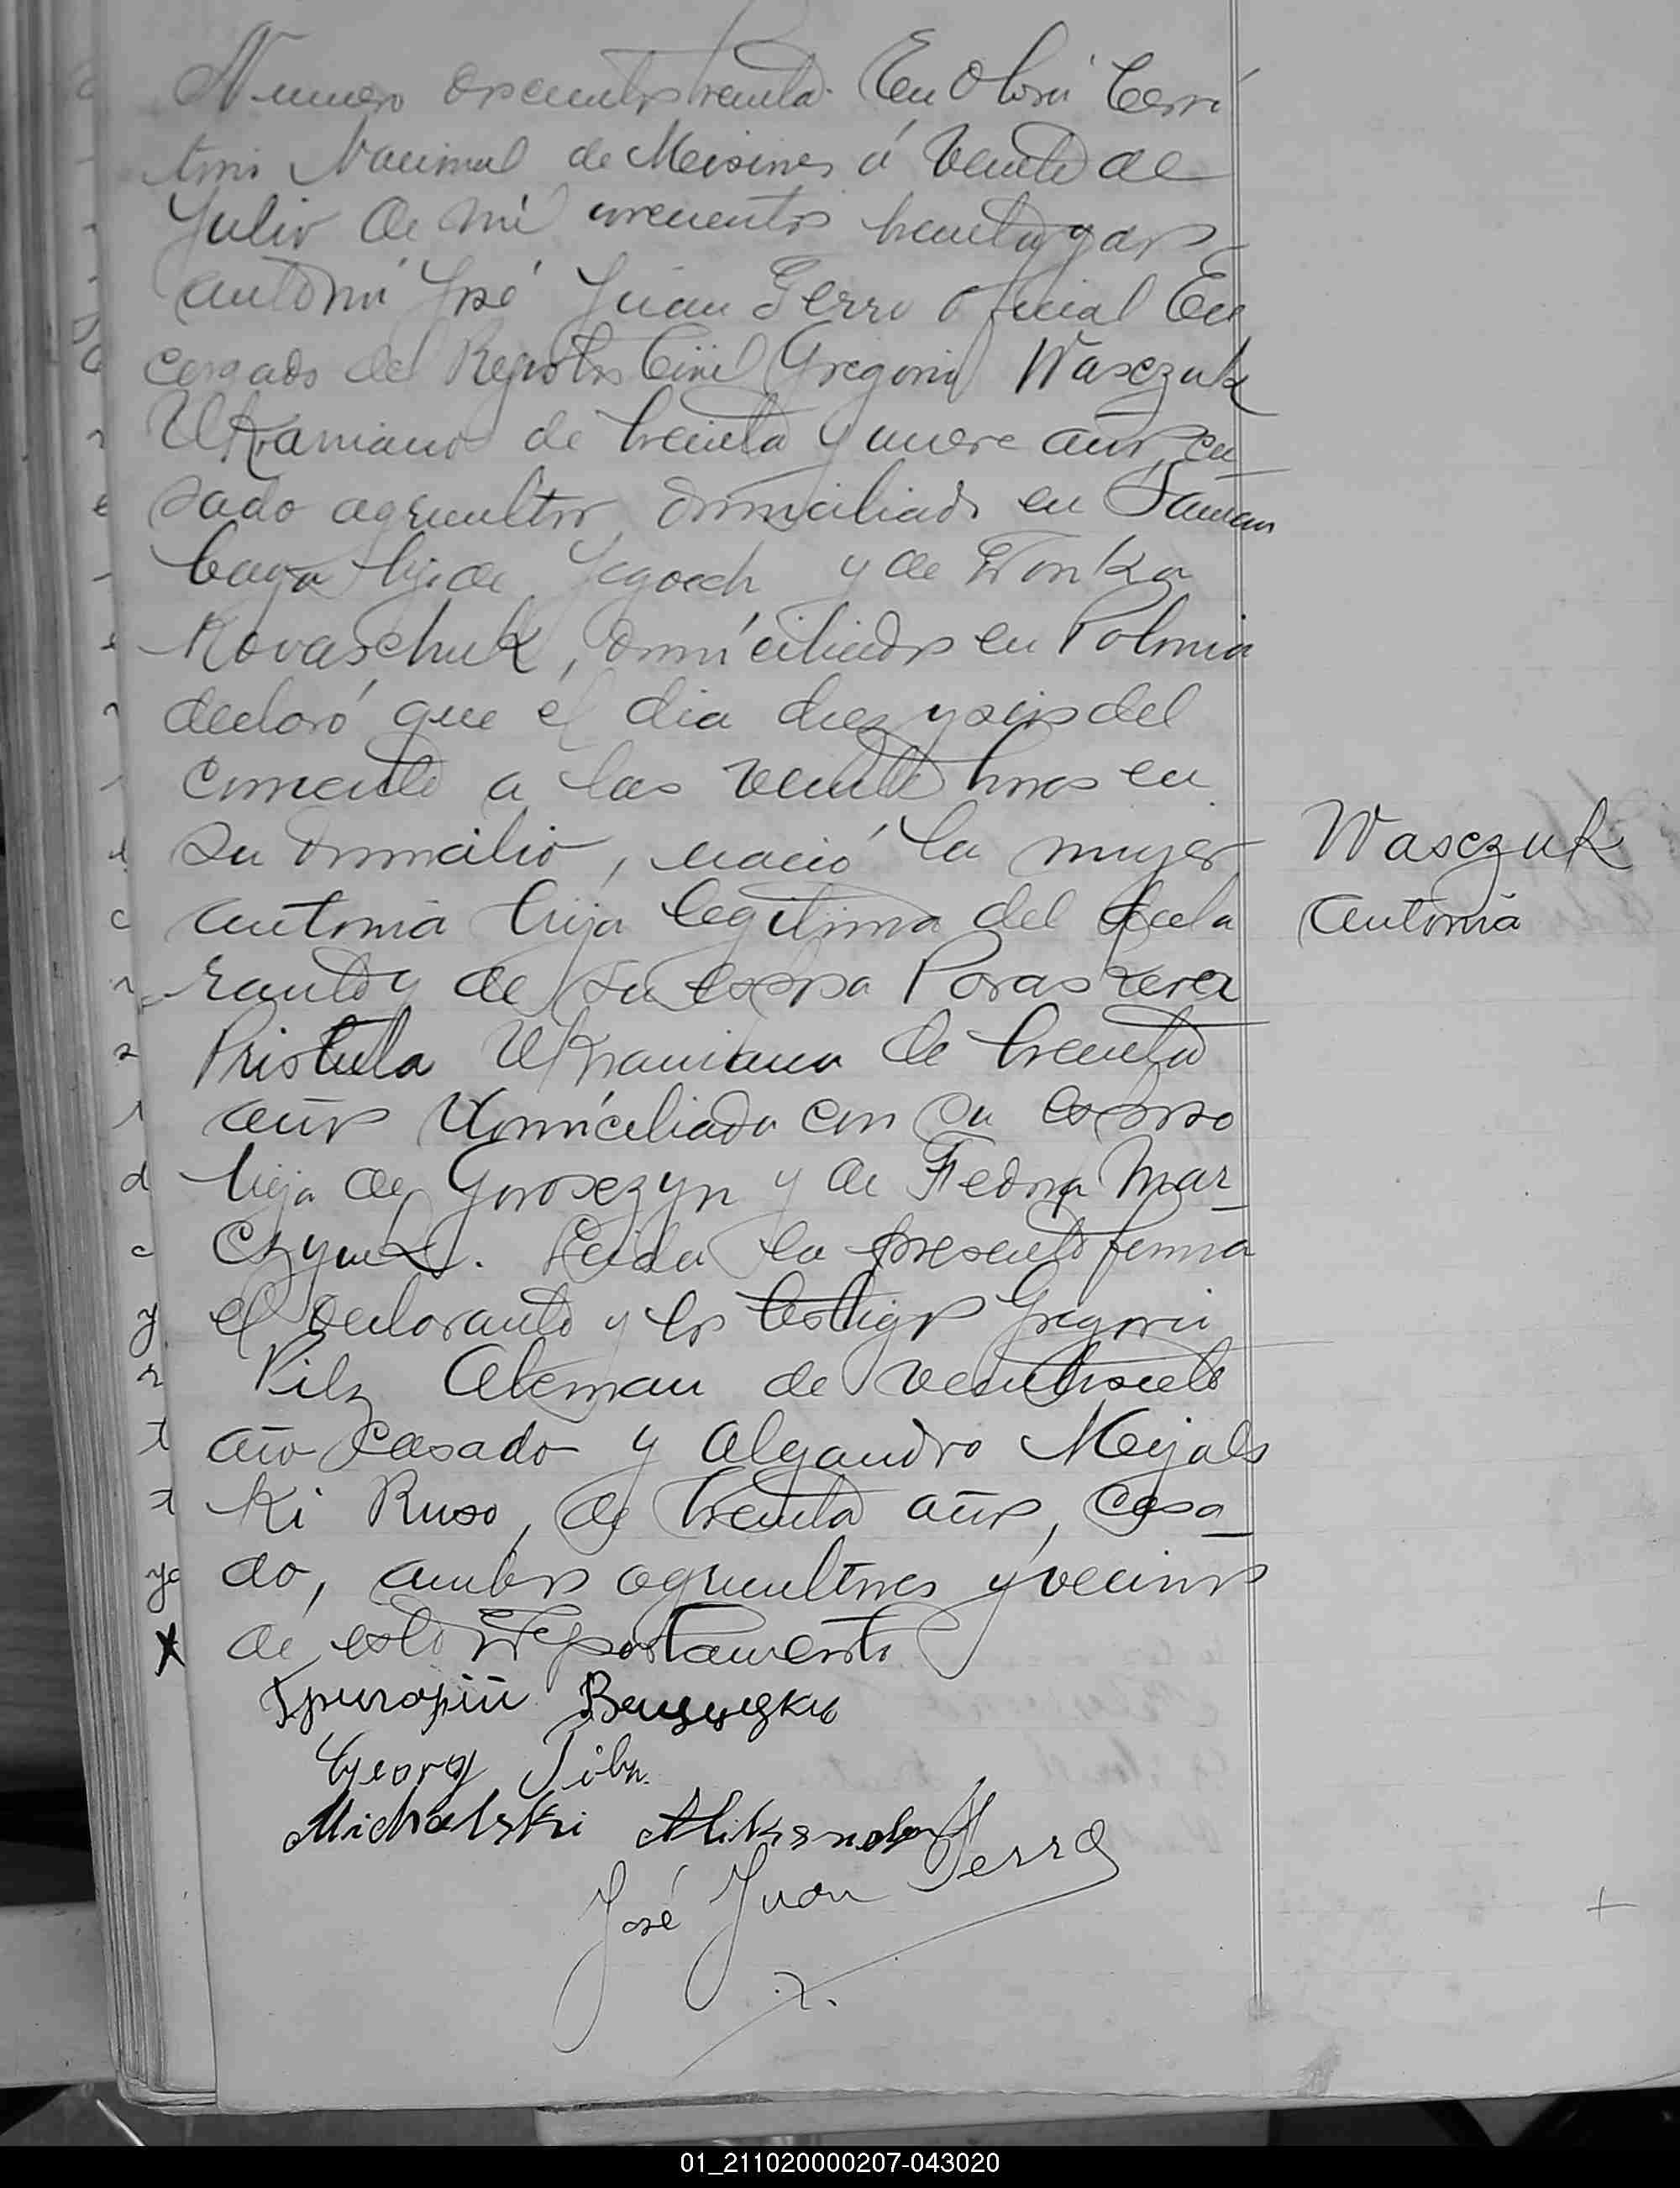 Numero doscientos treinta. En Oberá Terri
torio Nacional de Misiones á veinte de
Julio de mil novecientos treinta y dos
ante mí José Juan Ferro oficial En
cargado del Registro Civil Gregorio Wasczuk
Ukraniano de treinta y nueve años, ca
sado agricultor, domiciliado en Taman
baya hijo de y de Tonka
Kovaschuk, domiciliados en Polonia
declaró que el dia diez y seis del
corriente a las veinte horas en
su domicilio, nació la mujer
Antonia hija legitima del decla
rante y de su esposa Poraskeva
Pristula Ukraniana de treinta
años domiciliada con su esposo
hija de Yorosezyn y de Fedora Mar_
Leida la presente firma
el declarante y los testigos Gregorio
Pilz Aleman de veintisiete
año casado y Alejandro Mejals
ki Ruso, de treinta años, casa_
do, ambos agricultores y vecinos
de este Departamento
Григорій
Georg Pilz.
Michalski
José Juan Ferro
Wasczuk
Antonia
01_211020000207-043020